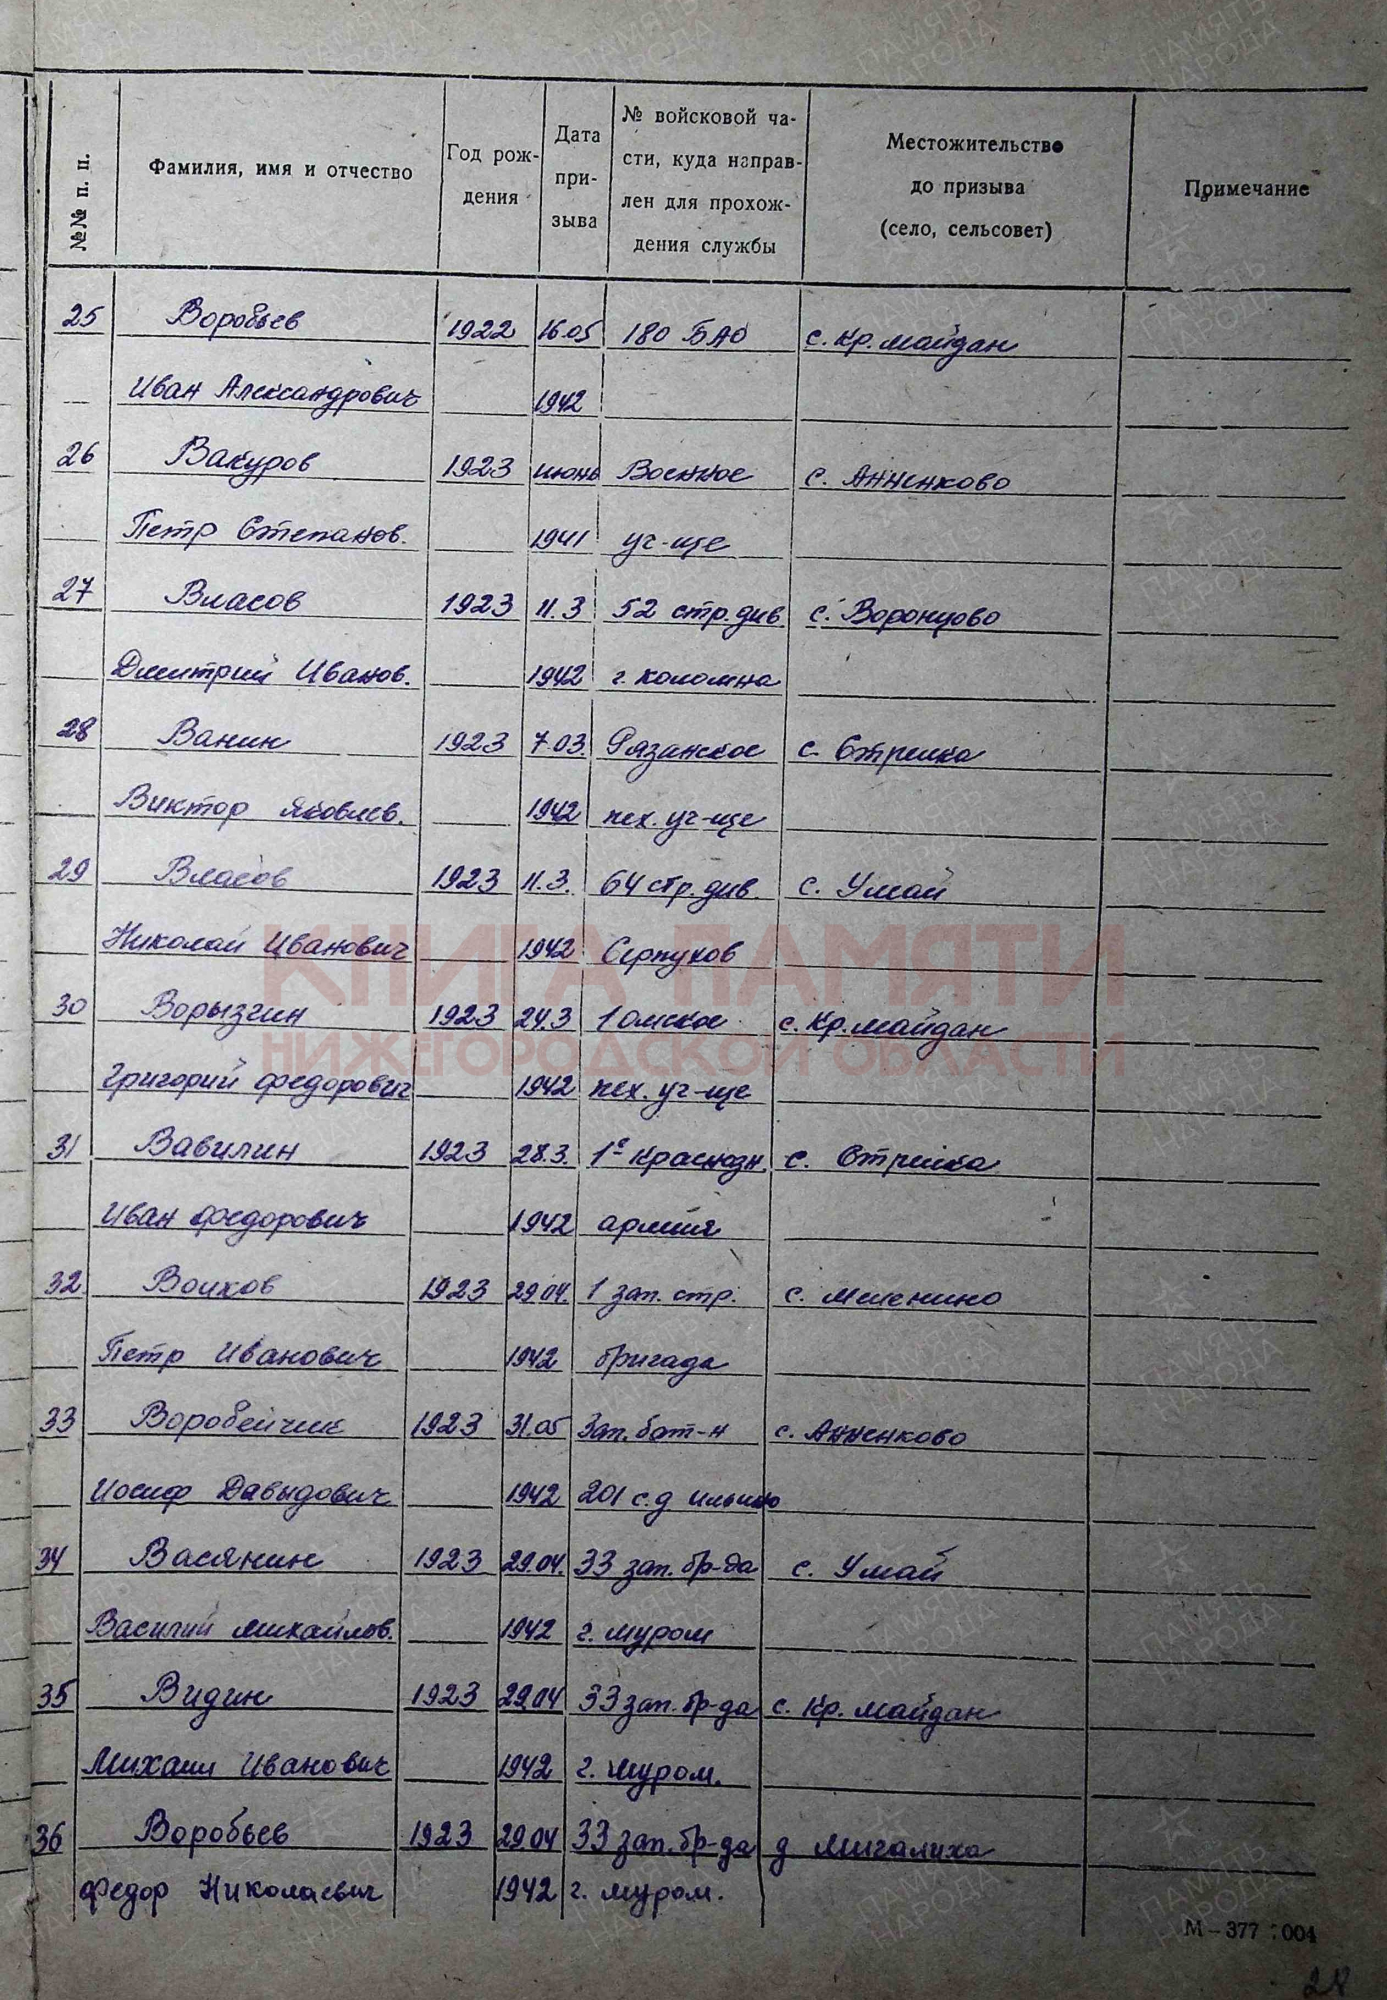 №№ п. п. Фамилия, имя и отчество Год рождения Дата призыва № войсковой части, куда направлен для прохождения службы Местожительство до призыва (село, сельсовет) Примечание
25 Воробьев 1922 16.05 180 БАО с. Кр. майдан
Иван Александрович 1942
26 Вакуров 1923 июнь Военное с. Анненково
Петр Степанов. 1941 уч-ще
27 Власов 1923 11.3 52 стр. див. с. Воронцово
Дмитрий Иванов. 1942 г. Коломна
28 Ванин 1923 7.03. Рязанское с. Стрелка
Виктор Яковлев. 1942 пех. уч-ще
29 Власов 1923 11.3. 64 стр. див. с. Умай
Николай Иванович 1942 Серпухов
КНИГА ПАМЯТИ
30 Ворызгин 1923 24.3 1 Омское с. Кр. майдан
НИЖЕГОРОДСКОЙ ОБЛАСТИ
Григорий Федорович 1942 пех. уч-ще
31 Вавилин 1923 28.3. 1е Краснозн. с. Стрелка
Иван Федорович 1942 армия
32 Волков 1923 29.04. 1 зап. стр. с. Меленино
Петр Иванович 1942 бригада
33 Воробейчик 1923 31.05 Зап. бат-н с. Анненково
Иосиф Давыдович 1942 201 с.д Ильино
34 Васянин 1923 29.04. 33 зап. бр-да с. Умай
Василий Михайлов. 1942 г. Муром
35 Видин 1923 29.04 33 зап. бр-да с. Кр. майдан
Михаил Иванович 1942 г. Муром.
36 Воробьев 1923 29.04 33 зап. бр-да д Мигалиха
Федор Николаевич 1942 г. Муром.
М-377 : 004
28